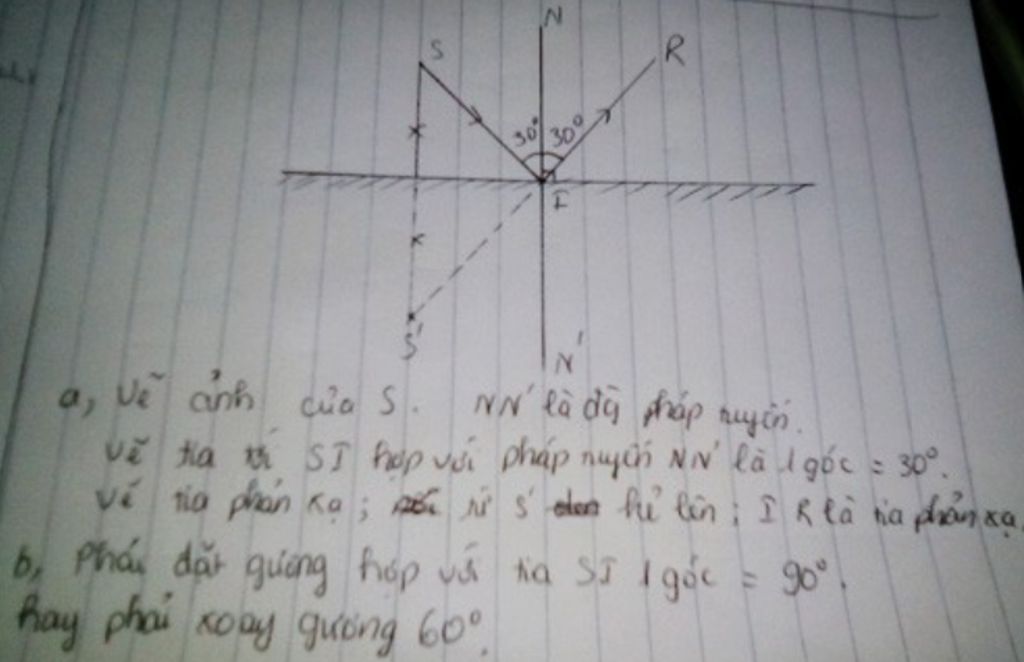 N
S
R
30° 30°
I
S'
N'
a, vẽ ảnh của S. NN' là đg pháp tuyến.
vẽ tia tới SI hợp với pháp tuyến NN' là 1 góc = 30°.
vẽ tia phản xạ; từ S' kẻ lên; IR là tia phản xạ
b, Phải đặt gương hợp với tia SI 1 góc = 90°.
hay phải xoay gương 60°.